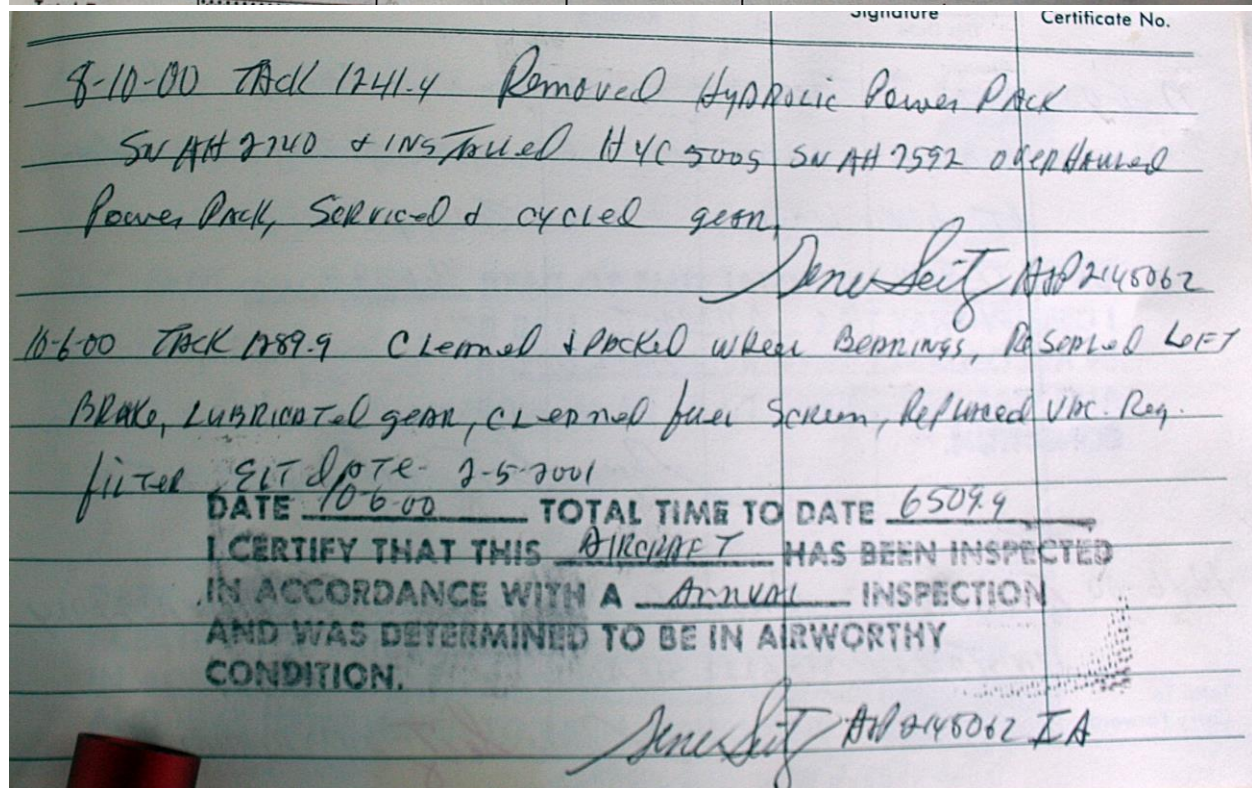 Signature Certificate No.
8-10-00 TACK 1241.4 Removed HYDROLIC Power PACK
SN AH 2740 & INSTALLED HYC 5005 SN AH 2592 overHAULED
Power PACK, Serviced & cycled gear,
Gene Seitz A&P 2145062
10-6-00 TACK 1289.9 Cleaned & PACKed wheel BeArINGS, ReSeALed LeFT
BRAKe, LUBRICATed geAR, CLeAned fuel Screen, RePLACed VAC. Reg.
filTer ELT dATe- 2-5-2001
DATE 10-6-00 TOTAL TIME TO DATE 6509.9
I CERTIFY THAT THIS AIRCRAFT HAS BEEN INSPECTED
IN ACCORDANCE WITH A Annual INSPECTION
AND WAS DETERMINED TO BE IN AIRWORTHY
CONDITION.
Gene Seitz A&P 2145062 IA